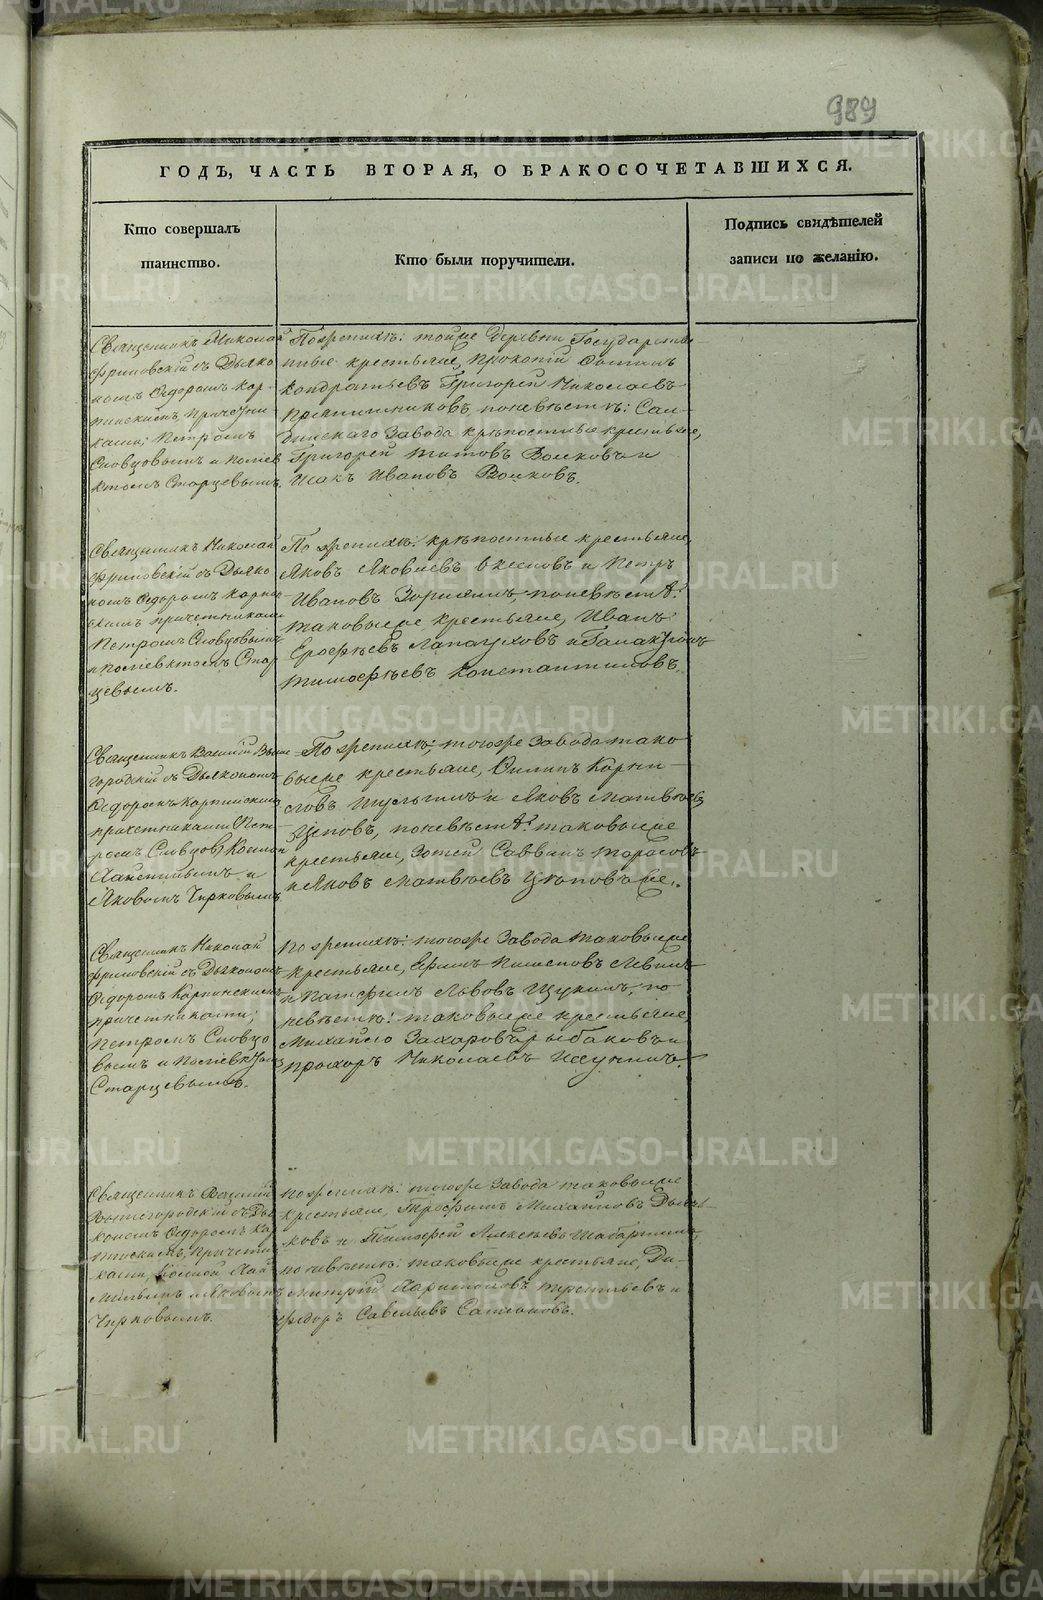 989
ГОДЪ, ЧАСТЬ ВТОРАЯ, О БРАКОСОЧЕТАВШИХСЯ.
Кто совершалъ
таинство.
Кто были поручители.
Подпись свидѣтелей
записи по желанію.
Священникъ Николай
съ Дьяко
номъ Ѳедоромъ Кар
пинскимъ, Причетни
ками: Петромъ
Словцовымъ и Полiев
ктомъ Старцевымъ.
По женихѣ: тойже деревни Государствен
ные крестьяне, Прокопій
Кондратьевъ Григорій Николаевъ
по невѣстѣ: Сал
динскаго Завода крѣпостные крестьяне,
Григорей Титовъ Волковъ и
Исакъ Ивановъ Волковъ.
Священникъ Николай
съ Дьяко
номъ Ѳедоромъ Карпин
скимъ причетниками
Петромъ Словцовымъ
и Полiевктомъ Стар
цевымъ.
По женихѣ: крѣпостные крестьяне
Яковъ Яковлевъ и Петръ
Ивановъ по невѣстѣ:
таковыеже крестьяне, Иванъ
Ерофѣевъ Лапауховъ и
Тимофѣевъ Константиновъ.
Священникъ Василій Выше
городскій съ Дьякономъ
Ѳедоромъ Карпинскимъ
причетниками Пет
ромъ Словцов.
и
Яковомъ Чирковымъ
По женихѣ: тогоже Завода тако
выеже крестьяне, Филипъ Корни
ловъ Шулгинъ и Яковъ Матвѣевъ
Цѣповъ, по невѣстѣ: таковыеже
крестьяне, Зотей Саввинъ Тарасовъ
и Яковъ Матвѣевъ Цѣповъ же.
Священникъ Николай
съ Дьякономъ
Ѳедоромъ Карпинскимъ
причетниками;
Петромъ Словцо
вымъ и Полiевктомъ
Старцевымъ.
По женихѣ: тогоже Завода таковыеже
крестьяне, Ефимъ
и Панфилъ Львовъ Щукинъ, по
невѣстѣ: таковыеже крестьяне,
Михайло Захаровъ Рыбаковъ и
Прохоръ Николаевъ
Священникъ Василій
Вышегородскій съ Дья
кономъ Ѳедоромъ Кар
пинскимъ, Причетни
ками,
и Яковомъ
Чирковымъ.
По женихѣ: тогоже Завода таковыеже
крестьяне, Трофимъ Михайловъ
ковъ и Тимофей Алексѣевъ
по невѣстѣ: таковыеже крестьяне, Ди
митрій Харитоновъ и
Ѳедоръ Савельевъ
METRIKI.GASO-URAL.RU